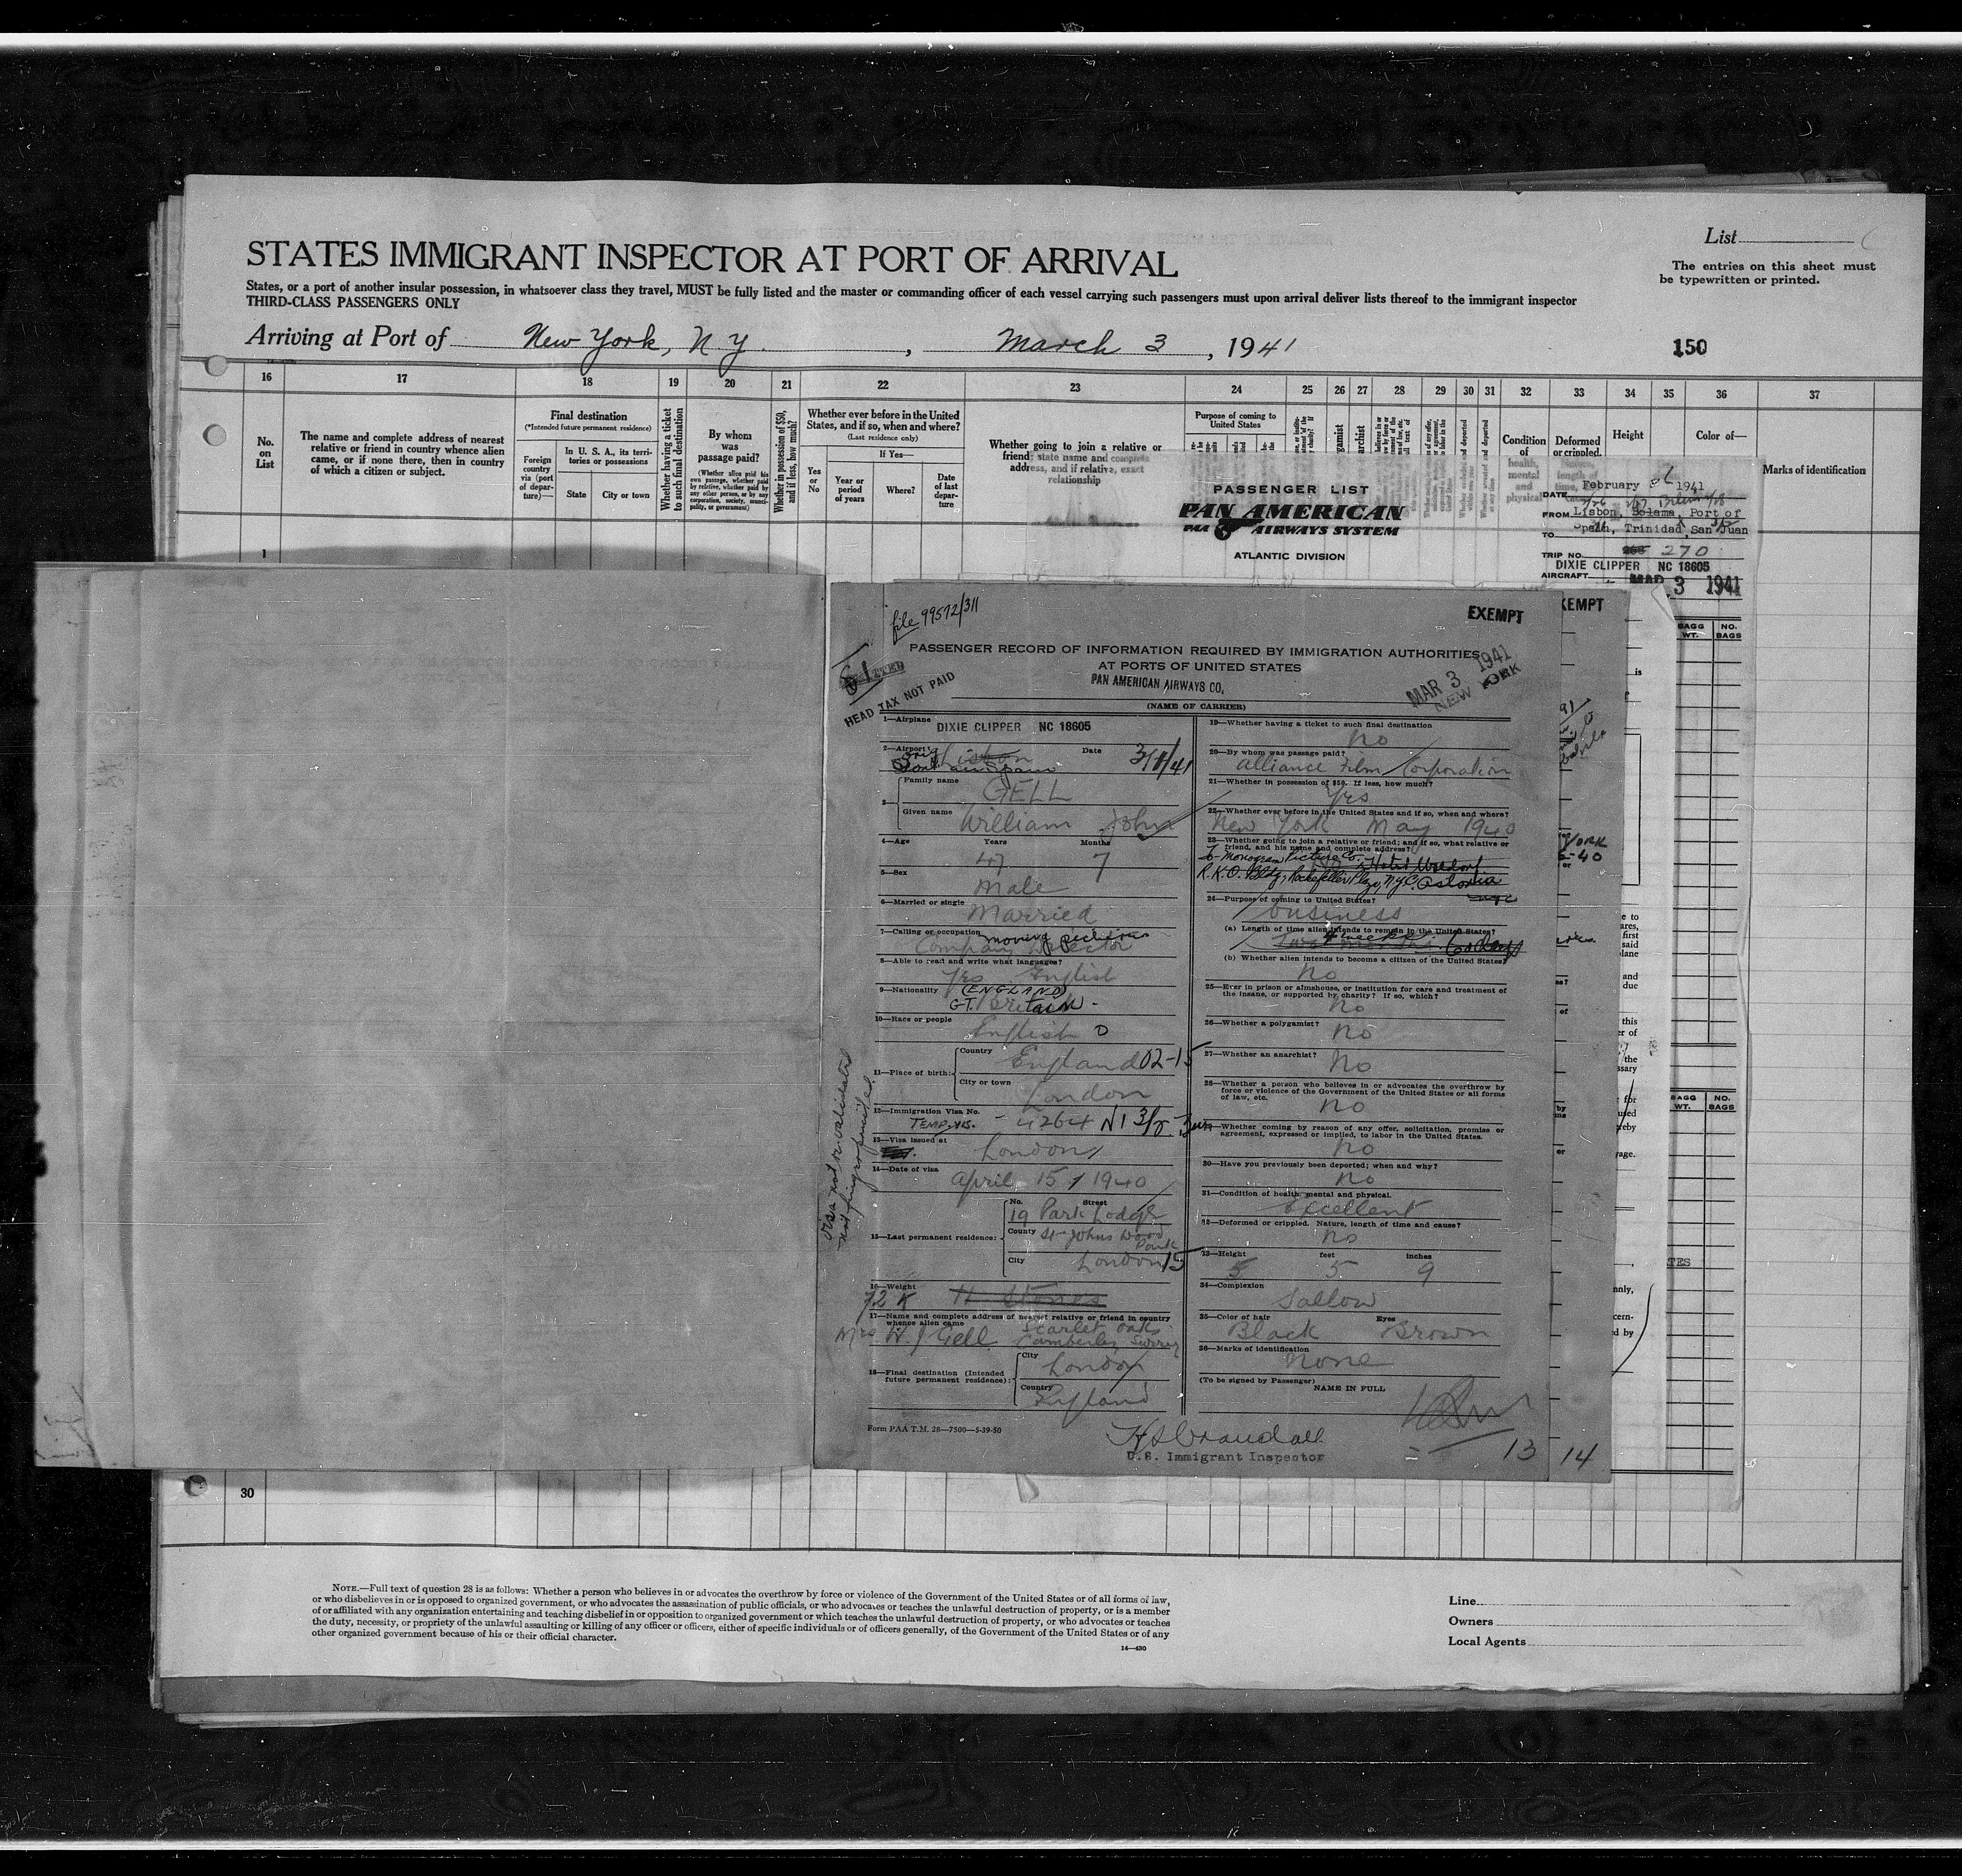 List
The entries on this sheet must
be typewritten or printed.
STATES IMMIGRANT INSPECTOR AT PORT OF ARRIVAL
States, or a port of another insular possession, in whatsoever class they travel, MUST be fully listed and the master or commanding officer of each vessel carrying such passengers must upon arrival deliver lists thereof to the immigrant inspector
THIRD-CLASS PASSENGERS ONLY
Arriving at Port of New York, N Y. , March 3 , 1941
150
16 17 18 19 20 21 22 23 24 25 26 27 28 29 30 31 32 33 34 35 36 37
No.
on
List
The name and complete address of nearest
relative or friend in country whence alien
came, or if none there, then in country
of which a citizen or subject.
Final destination
(*Intended future permanent residence)
Foreign
country
via (port
of depar-
ture)—
In U. S. A., its terri-
tories or possessions
State
City or town
Whether having a ticket
to such final destination
By whom
was
passage paid?
(Whether alien paid his
own passage, whether paid
by relative, whether paid by
any other person, or by any
corporation, society, munici-
pality, or government)
Whether in possession of $50,
and if less, how much?
Whether ever before in the United
States, and if so, when and where?
(Last residence only)
Yes
or
No
If Yes—
Year or
period
of years
Where?
Date
of last
depar-
ture
Whether going to join a relative or
friend; state name and complete
address, and if relative, exact
relationship
Purpose of coming to
United States
Condition
of
health,
mental
and
physical
Deformed
or crippled.
Height
Color of—
Marks of identification
1
PASSENGER LIST
PAN AMERICAN
PAA AIRWAYS SYSTEM
ATLANTIC DIVISION
DATE February 1941
FROM Lisbon, Bolama, Port of
TO Spain, Trinidad, San Juan
TRIP NO. 270
DIXIE CLIPPER NC 18605
AIRCRAFT
MAR 3 1941
BAGG
WT.
NO.
BAGS
file 99572/311
EXEMPT
EXEMPT
PASSENGER RECORD OF INFORMATION REQUIRED BY IMMIGRATION AUTHORITIES
AT PORTS OF UNITED STATES
PAN AMERICAN AIRWAYS CO.
(NAME OF CARRIER)
HEAD TAX NOT PAID
MAR 3 1941
NEW YORK
1—Airplane DIXIE CLIPPER NC 18605
2—Airport Lisbon Date
Family name GELL
3—
Given name William John
4—Age Years 47 Months 7
5—Sex Male
6—Married or single Married
7—Calling or occupation moving pictures
Company Director
8—Able to read and write what languages?
Yes English
9—Nationality (ENGLAND)
GT. Britain -
10—Race or people
English
11—Place of birth: Country England 02-15
City or town London
12—Immigration Visa No.
TEMP. VIS. - 4264
13—Visa issued at London
14—Date of visa
April 15 1940
15—Last permanent residence: No. Street
19 Park Lodge
County St Johns Wood
Park
City London
16—Weight
72 K 11 Stones
17—Name and complete address of nearest relative or friend in country
whence alien came
Mrs W. J Gell Scarlet Oaks
Camberley Surrey
18—Final destination (Intended
future permanent residence): City London
Country England
Form PAA T.M. 28—7500—5-39-50
visa not revalidated
not fingerprinted
19—Whether having a ticket to such final destination
No
20—By whom was passage paid?
Alliance Film Corporation
21—Whether in possession of $50. If less, how much?
Yes
22—Whether ever before in the United States and if so, when and where?
New York May 1940
23—Whether going to join a relative or friend; and if so, what relative or
friend, and his name and complete address?
To-Monogram Picture Co. Hotel Waldorf
R.K.O. Bldg, Rockefeller Plaza, N.Y.C. Astoria
NYC
24—Purpose of coming to United States?
business
(a) Length of time alien intends to remain in the United States?
60 days
(b) Whether alien intends to become a citizen of the United States?
No
25—Ever in prison or almshouse, or institution for care and treatment of
the insane, or supported by charity? If so, which?
No
26—Whether a polygamist? No
27—Whether an anarchist? No
28—Whether a person who believes in or advocates the overthrow by
force or violence of the Government of the United States or all forms
of law, etc.
No
29—Whether coming by reason of any offer, solicitation, promise or
agreement, expressed or implied, to labor in the United States.
No
30—Have you previously been deported; when and why?
No
31—Condition of health, mental and physical.
Excellent
32—Deformed or crippled. Nature, length of time and cause?
No
33—Height feet inches
5 5 9
34—Complexion
Sallow
35—Color of hair Eyes
Black Brown
36—Marks of identification
None
(To be signed by Passenger)
NAME IN FULL
U.S. Immigrant Inspector
13 14
30
NOTE.—Full text of question 28 is as follows: Whether a person who believes in or advocates the overthrow by force or violence of the Government of the United States or of all forms of law,
or who disbelieves in or is opposed to organized government, or who advocates the assassination of public officials, or who advocates or teaches the unlawful destruction of property, or is a member
of or affiliated with any organization entertaining and teaching disbelief in or opposition to organized government or which teaches the unlawful destruction of property, or who advocates or teaches
the duty, necessity, or propriety of the unlawful assaulting or killing of any officer or officers, either of specific individuals or of officers generally, of the Government of the United States or of any
other organized government because of his or their official character.
14—430
Line
Owners
Local Agents